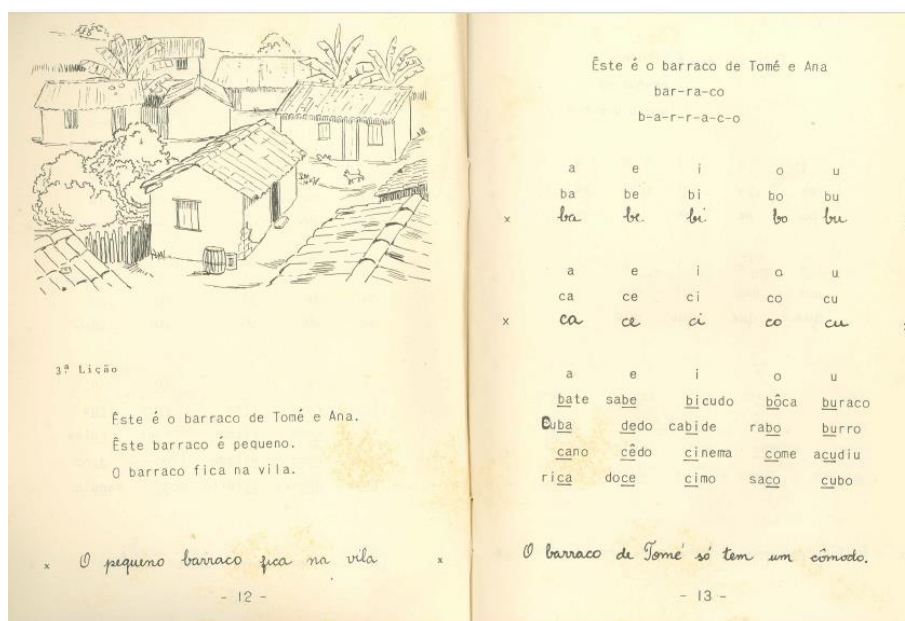 3ª Lição
Êste é o barraco de Tomé e Ana.
Êste barraco é pequeno.
O barraco fica na vila.
x O pequeno barraco fica na vila x
- 12 -
Êste é o barraco de Tomé e Ana
bar-ra-co
b-a-r-r-a-c-o
a e i o u
ba be bi bo bu
x ba be. bi. bo bu
a e i o u
ca ce ci co cu
x ca ce ci co cu
a e i o u
bate sabe bicudo bôca buraco
Cuba dedo cabide rabo burro
cano cêdo cinema come acudiu
rica doce cimo saco cubo
O barraco de Tomé só tem um cômodo.
- 13 -